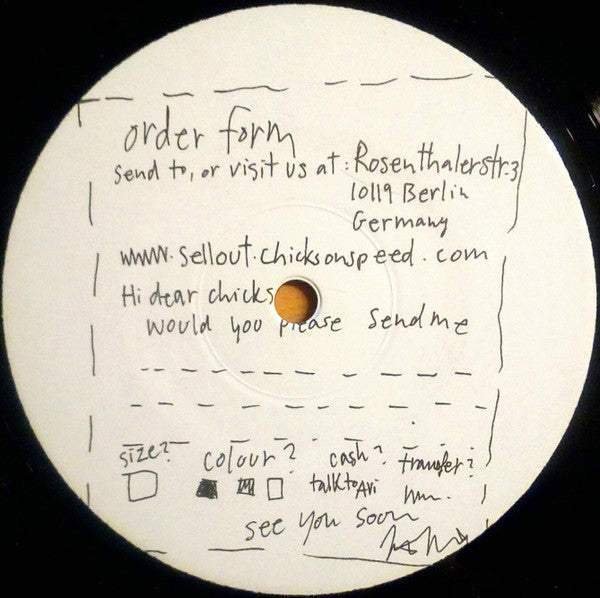 order form
send to, or visit us at: Rosenthalerstr.3
10119 Berlin
Germany
www.sellout.chicksonspeed.com
Hi dear chicks
would you please send me
size? colour? cash? transfer?
talk to Avi hm.
see you soon